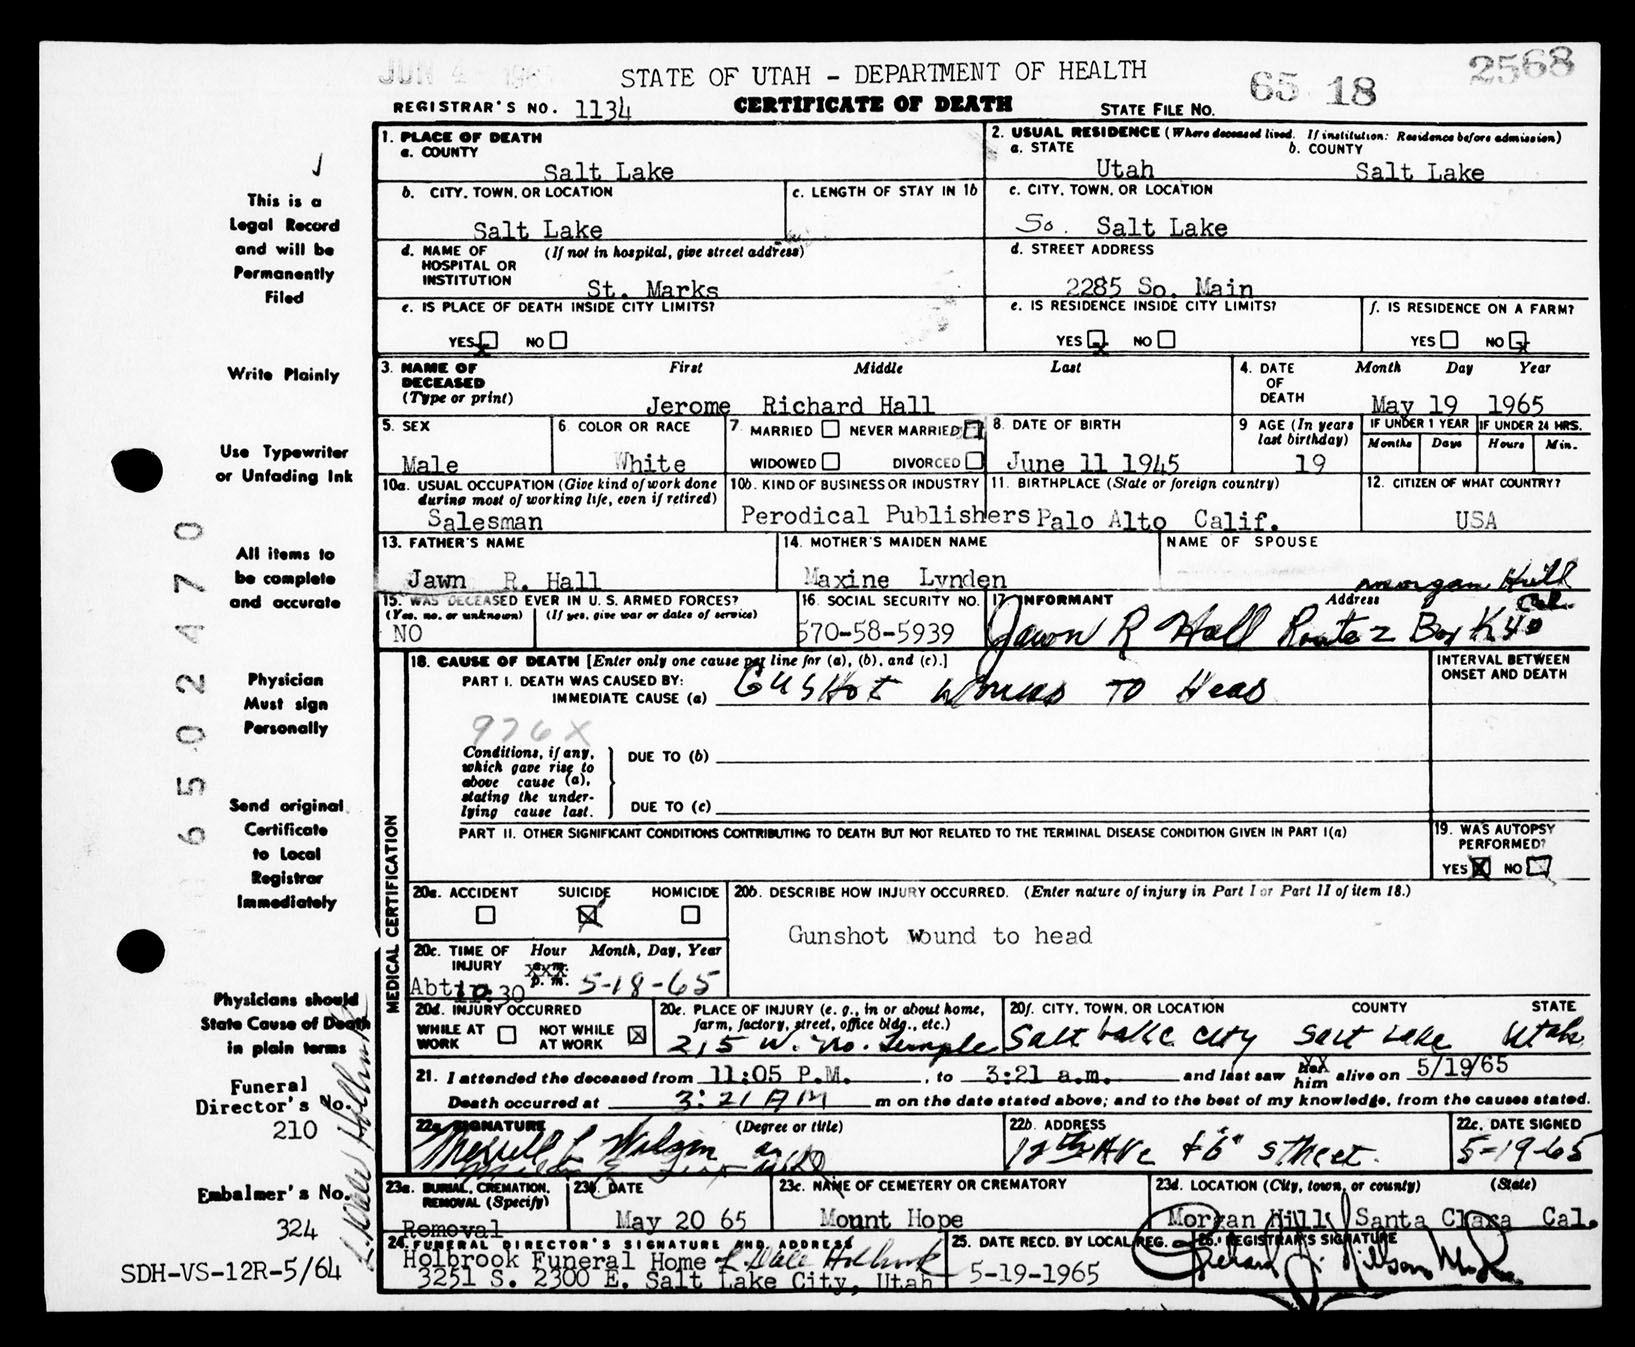 JUN 4
STATE OF UTAH - DEPARTMENT OF HEALTH
2568
REGISTRAR'S NO. 1134
CERTIFICATE OF DEATH
STATE FILE NO. 65 18
1. PLACE OF DEATH
a. COUNTY
Salt Lake
2. USUAL RESIDENCE (Where deceased lived. If institution: Residence before admission)
a. STATE
Utah
b. COUNTY
Salt Lake
b. CITY, TOWN, OR LOCATION
Salt Lake
c. LENGTH OF STAY IN 1b
c. CITY, TOWN, OR LOCATION
So. Salt Lake
d. NAME OF HOSPITAL OR INSTITUTION (If not in hospital, give street address)
St. Marks
d. STREET ADDRESS
2285 So. Main
e. IS PLACE OF DEATH INSIDE CITY LIMITS?
YES x NO
e. IS RESIDENCE INSIDE CITY LIMITS?
YES x NO
f. IS RESIDENCE ON A FARM?
YES NO x
3. NAME OF DECEASED (Type or print)
First Middle Last
Jerome Richard Hall
4. DATE OF DEATH
Month Day Year
May 19 1965
5. SEX
Male
6. COLOR OR RACE
White
7 MARRIED NEVER MARRIED
WIDOWED DIVORCED
8. DATE OF BIRTH
June 11 1945
9 AGE (In years last birthday)
19
IF UNDER 1 YEAR
Months Days
IF UNDER 24 HRS.
Hours Min.
10a. USUAL OCCUPATION (Give kind of work done during most of working life, even if retired)
Salesman
10b. KIND OF BUSINESS OR INDUSTRY
Perodical Publishers
11. BIRTHPLACE (State or foreign country)
Palo Alto Calif.
12. CITIZEN OF WHAT COUNTRY?
USA
13. FATHER'S NAME
Jawn R. Hall
14. MOTHER'S MAIDEN NAME
Maxine Lynden
NAME OF SPOUSE
15. WAS DECEASED EVER IN U. S. ARMED FORCES?
(Yes, no, or unknown) (If yes, give war or dates of service)
NO
16. SOCIAL SECURITY NO.
570-58-5939
17 INFORMANT Address
Morgan Hill Cal.
Jawn R Hall Route 2 Box K40
MEDICAL CERTIFICATION
18. CAUSE OF DEATH [Enter only one cause per line for (a), (b), and (c).]
INTERVAL BETWEEN ONSET AND DEATH
PART I. DEATH WAS CAUSED BY:
IMMEDIATE CAUSE (a) Gushot Wounds to Head
976X
Conditions, if any, which gave rise to above cause (a), stating the underlying cause last.
DUE TO (b)
DUE TO (c)
PART II. OTHER SIGNIFICANT CONDITIONS CONTRIBUTING TO DEATH BUT NOT RELATED TO THE TERMINAL DISEASE CONDITION GIVEN IN PART I(a)
19. WAS AUTOPSY PERFORMED?
YES X NO
20a. ACCIDENT SUICIDE HOMICIDE
X
20b. DESCRIBE HOW INJURY OCCURRED. (Enter nature of injury in Part I or Part II of item 18.)
Gunshot wound to head
20c. TIME OF INJURY Hour Month, Day, Year
Abt 10:30 xxx p. m. 5-18-65
20d. INJURY OCCURRED
WHILE AT WORK NOT WHILE AT WORK X
20e. PLACE OF INJURY (e. g., in or about home, farm, factory, street, office bldg., etc.)
215 W. No. Temple
20f. CITY, TOWN, OR LOCATION COUNTY STATE
Salt Lake City Salt Lake Utah
21. I attended the deceased from 11:05 P.M., to 3:21 a.m. and last saw her him alive on 5/19/65
Death occurred at 3:21 AM m on the date stated above; and to the best of my knowledge, from the causes stated.
22a. SIGNATURE (Degree or title)
Merrill L Wilson MD
22b. ADDRESS
12th Ave & "E" Street.
22c. DATE SIGNED
5-19-65
23a. BURIAL, CREMATION, REMOVAL (Specify)
Removal
23b. DATE
May 20 65
23c. NAME OF CEMETERY OR CREMATORY
Mount Hope
23d. LOCATION (City, town, or county) (State)
Morgan Hill Santa Clara Cal.
24. FUNERAL DIRECTOR'S SIGNATURE AND ADDRESS
Holbrook Funeral Home L Dale Holbrook
3251 S. 2300 E. Salt Lake City, Utah
25. DATE RECD. BY LOCAL REG.
5-19-1965
26. REGISTRAR'S SIGNATURE
This is a
Legal Record
and will be
Permanently
Filed
Write Plainly
Use Typewriter
or Unfading Ink
All items to
be complete
and accurate
Physician
Must sign
Personally
Send original
Certificate
to Local
Registrar
Immediately
Physicians should
State Cause of Death
in plain terms
Funeral
Director's No.
210
Embalmer's No.
324
L. Dale Holbrook
SDH-VS-12R-5/64
6502470